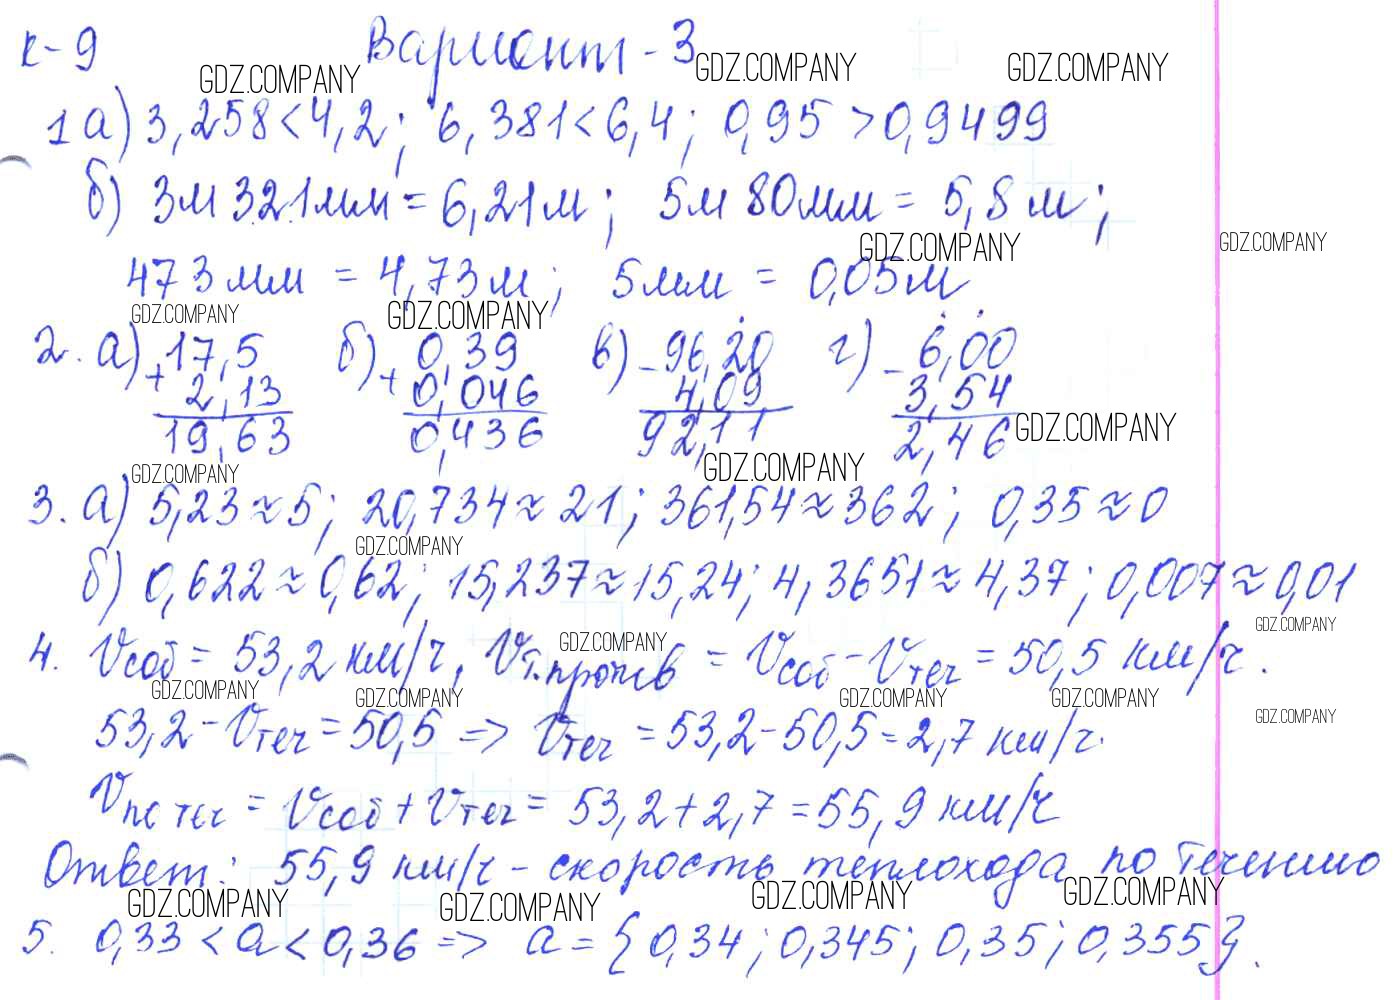 К-9 Вариант-3
GDZ.COMPANY GDZ.COMPANY GDZ.COMPANY
1 а) 3,258<4,2; 6,381<6,4; 0,95>0,9499
б) 3м 321мм = 6,21м; 5м 80мм = 5,8м;
GDZ.COMPANY GDZ.COMPANY
473мм = 4,73м; 5мм = 0,05м
GDZ.COMPANY GDZ.COMPANY
2. а) +17,5 б) +0,39 в) -96,20 г) -6,00
2,13 0,046 4,09 3,54
19,63 0,436 92,11 2,46
GDZ.COMPANY
GDZ.COMPANY GDZ.COMPANY
3. а) 5,23≈5; 20,734≈21; 361,54≈362; 0,35≈0
GDZ.COMPANY
б) 0,622≈0,62; 15,237≈15,24; 4,3651≈4,37; 0,007≈0,01
GDZ.COMPANY GDZ.COMPANY
4. Vсоб = 53,2 км/ч, Vт.против = Vсоб - Vтеч = 50,5 км/ч.
GDZ.COMPANY GDZ.COMPANY GDZ.COMPANY GDZ.COMPANY GDZ.COMPANY
53,2 - Vтеч = 50,5 => Vтеч = 53,2-50,5=2,7 км/ч.
Vпо теч = Vсоб + Vтеч = 53,2+2,7=55,9 км/ч
Ответ: 55,9 км/ч - скорость теплохода по течению
GDZ.COMPANY GDZ.COMPANY GDZ.COMPANY GDZ.COMPANY
5. 0,33 < а < 0,36 => а = {0,34; 0,345; 0,35; 0,355}.